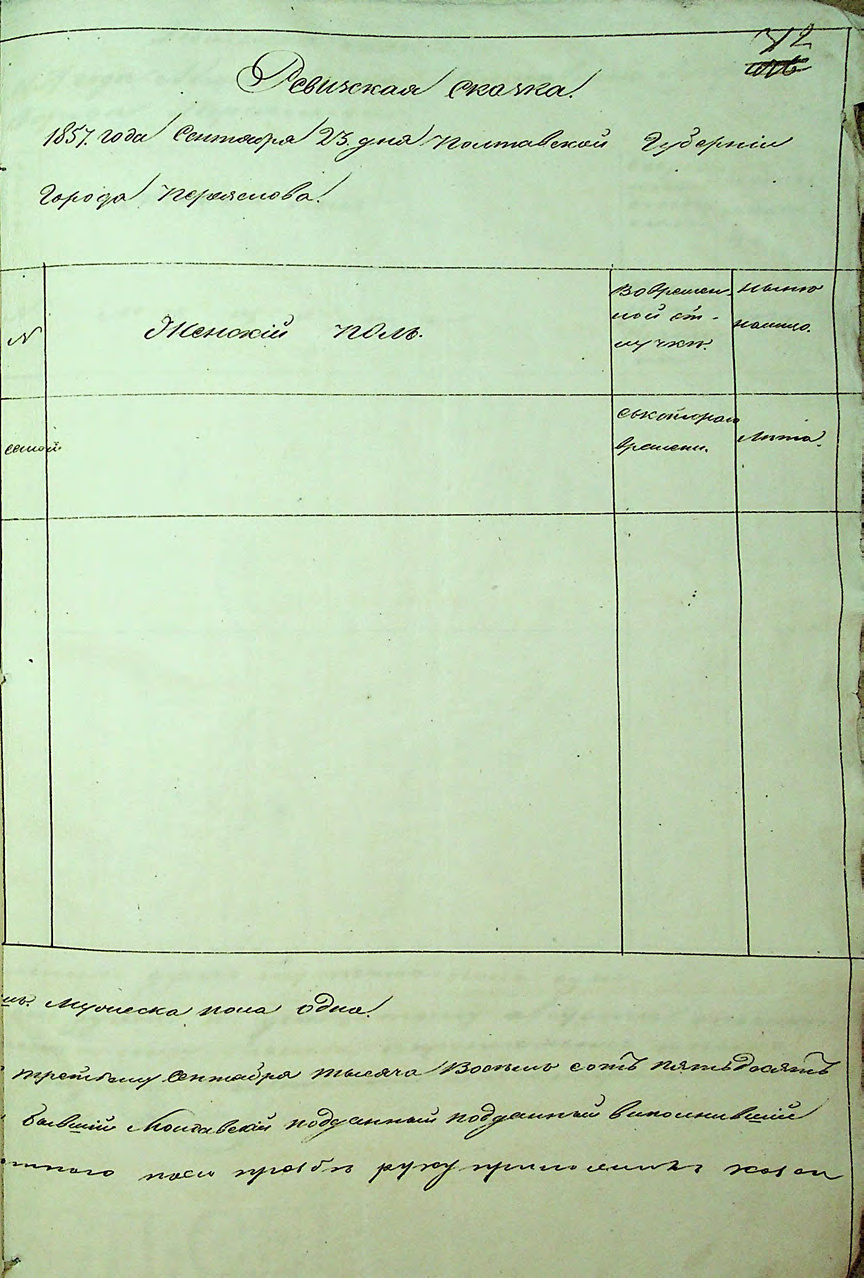 312
Ревизская сказка.
1857. года Сентября 23. дня Полтавской Губерніи
Города Переяслова.
N
Женскій полъ.
Во времен-
ной от-
лучкѣ.
Нынѣ
налицо.
семей
съ котораго
времени.
Лѣта.
Мужеска пола одна.
третьему Сентября тысяча Восемь сотъ пятьдесятъ
бывшій Молдавскій подданный подданный
его прозбѣ руку приложилъ